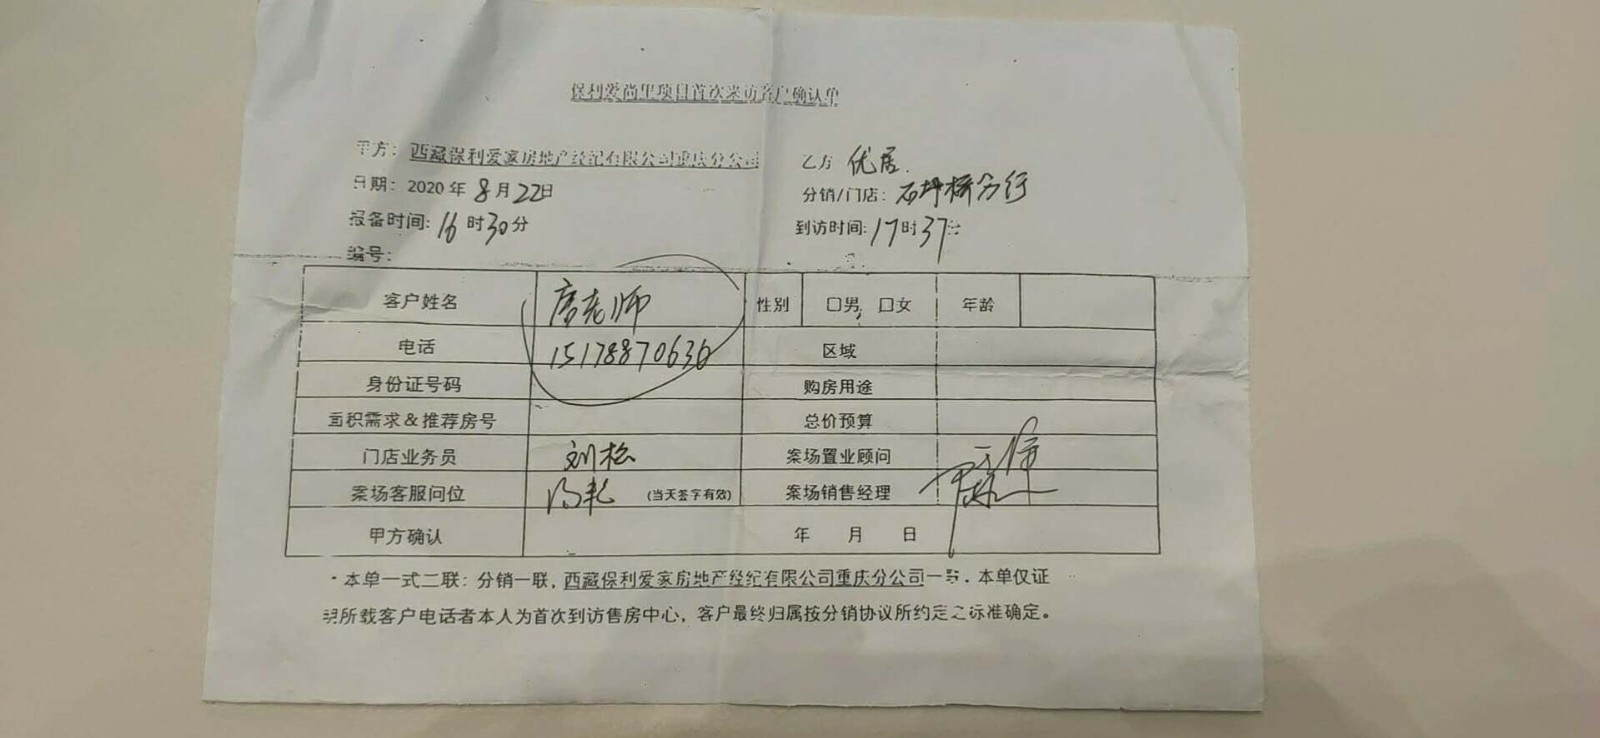 保利爱尚里项目首次来访客户确认单
甲方：西藏保利爱家房地产经纪有限公司重庆分公司 乙方 优居.
日期：2020年8月22日 分销/门店：石坪桥分行
报备时间：16时30分 到访时间：17时37分
编号：
客户姓名 唐老师 性别 口男 口女 年龄
电话 15178870636 区域
身份证号码 购房用途
面积需求&推荐房号 总价预算
门店业务员 刘松 案场置业顾问
案场客服问位 (当天签字有效) 案场销售经理
甲方确认 年 月 日
·本单一式二联：分销一联，西藏保利爱家房地产经纪有限公司重庆分公司一联．本单仅证
明所载客户电话者本人为首次到访售房中心，客户最终归属按分销协议所约定之标准确定。